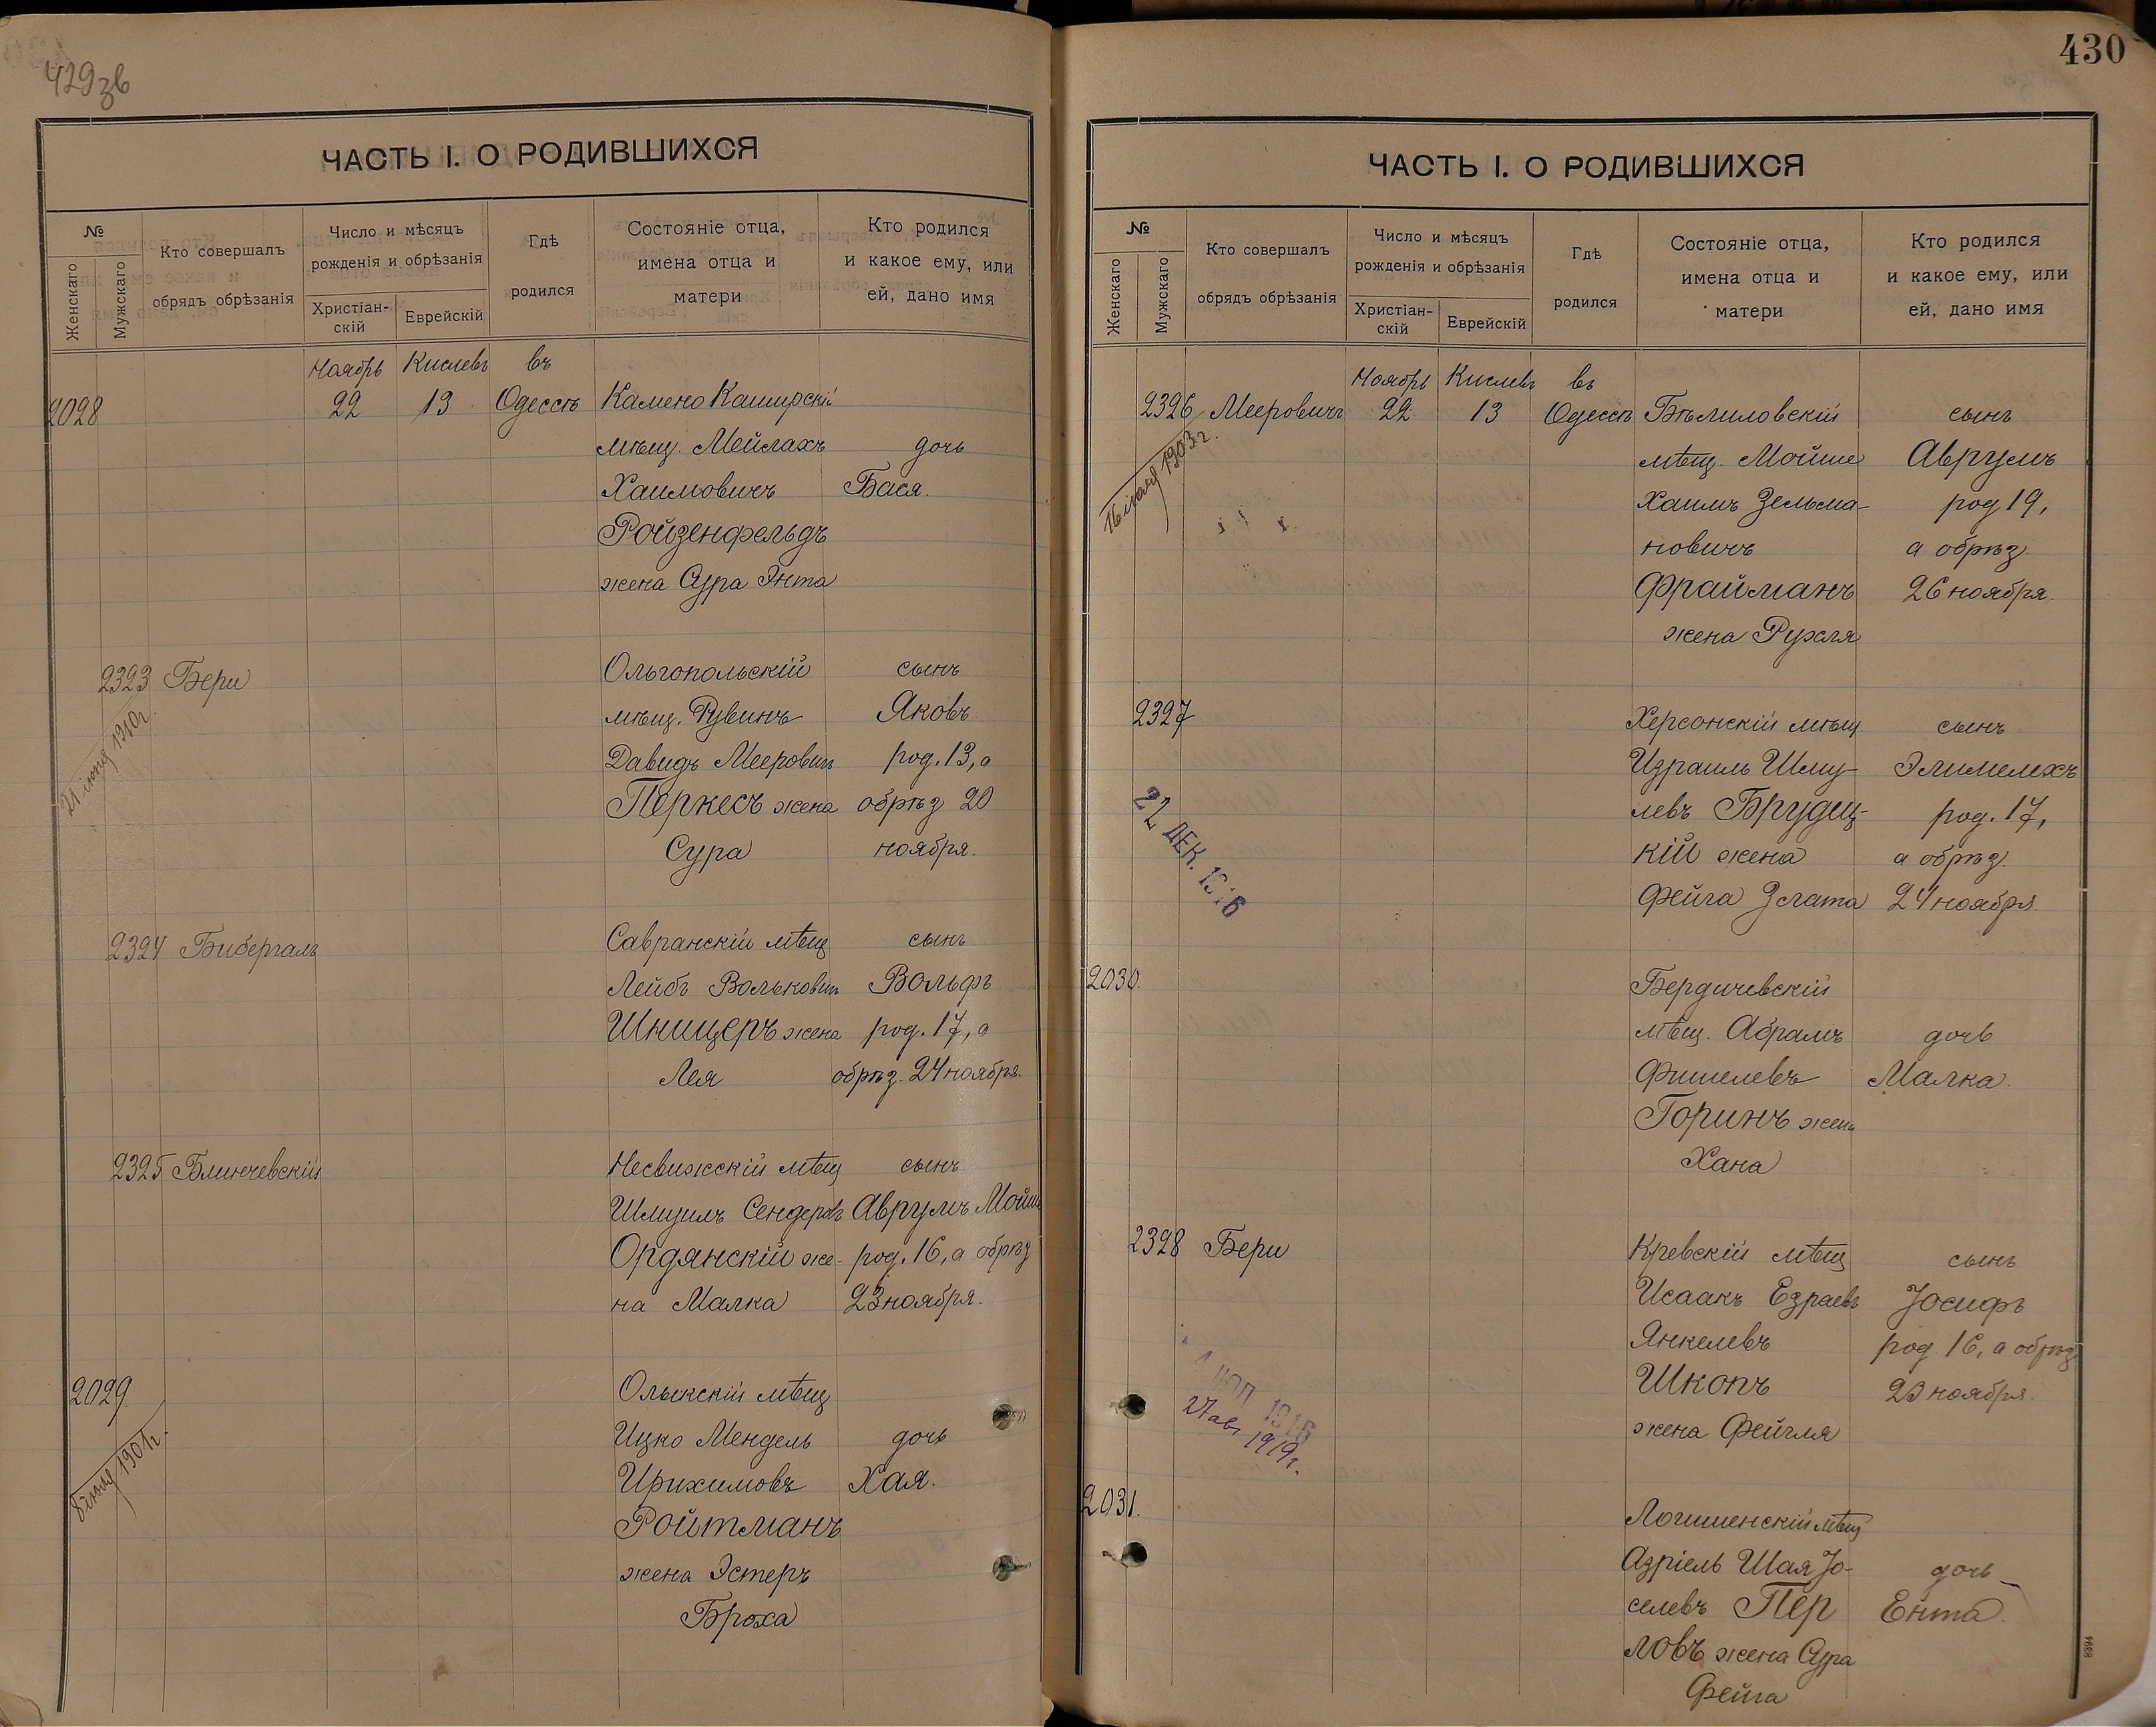 429зв
ЧАСТЬ I. О РОДИВШИХСЯ
№
Женскаго
Мужскаго
Кто совершалъ
обрядъ обрѣзанія
Число и мѣсяцъ
рожденія и обрѣзанія
Христіан-
скій
Еврейскій
Гдѣ
родился
Состояніе отца,
имена отца и
матери
Кто родился
и какое ему, или
ей, дано имя
Ноябрь Кислевъ въ
2028 22 13 Одессѣ Камено Каширскій
мѣщ. Мейлахъ дочь
Хаимовичъ Бася.
Ройзенфельдъ
жена Сура Энта
2323 Бери Ольгопольскій сынъ
21 іюня 1910г.
мѣщ. Рувинъ Яковъ
Давидъ Мееровичъ род. 13, а
Перкесъ жена обрѣз 20
Сура ноября.
2324 Бибергаль Савранскій мѣщ сынъ
Лейбъ Вольковичъ Вольфъ
Шницеръ жена род. 17, а
Лея обрѣз. 24 ноября.
2325 Блинчевскій Несвижскій мѣщ сынъ
Шмуилъ Сендеровъ Аврумъ Мойше
Ордянскій же- род. 16, а обрѣз
на Малка 23 ноября.
2029. Олыкскій мѣщ
8 іюля 1901г.
Ицко Мендель дочь
Ирихимовъ Хая.
Ройтманъ
жена Эстеръ
Броха
430
ЧАСТЬ I. О РОДИВШИХСЯ
№
Женскаго
Мужскаго
Кто совершалъ
обрядъ обрѣзанія
Число и мѣсяцъ
рожденія и обрѣзанія
Христіан-
скій
Еврейскій
Гдѣ
родился
Состояніе отца,
имена отца и
матери
Кто родился
и какое ему, или
ей, дано имя
Ноябрь Кислевъ въ
2326 Мееровичъ 22 13 Одессѣ Бѣлиловскій сынъ
1903г.
мѣщ. Мойше Аврумъ
Хаимъ Зельма- род 19,
новичъ а обрѣз.
Фрайманъ 26 ноября.
жена Рухля
2327 Херсонскій мѣщ. сынъ
Израиль Шму- Элимелехъ
левъ Брудец- род. 17,
22 ДЕК. 1916
кій жена а обрѣз.
Фейга Злата 24 ноября.
2030. Бердичевскій
мѣщ. Абрамъ дочь
Фишелевъ Малка.
Горинъ жена
Хана
2328 Бери Кревскій мѣщ сынъ
Исаакъ Езраевъ Іосифъ
Янкелевъ род. 16, а обрѣз
Шкопъ 23 ноября.
1916
27 авг 1919г.
жена Фейгля
2031. Логишенскій мѣщ
Азріель Шая Іо- дочь
селевъ Пер Ента.
ловъ жена Сура
Фейга